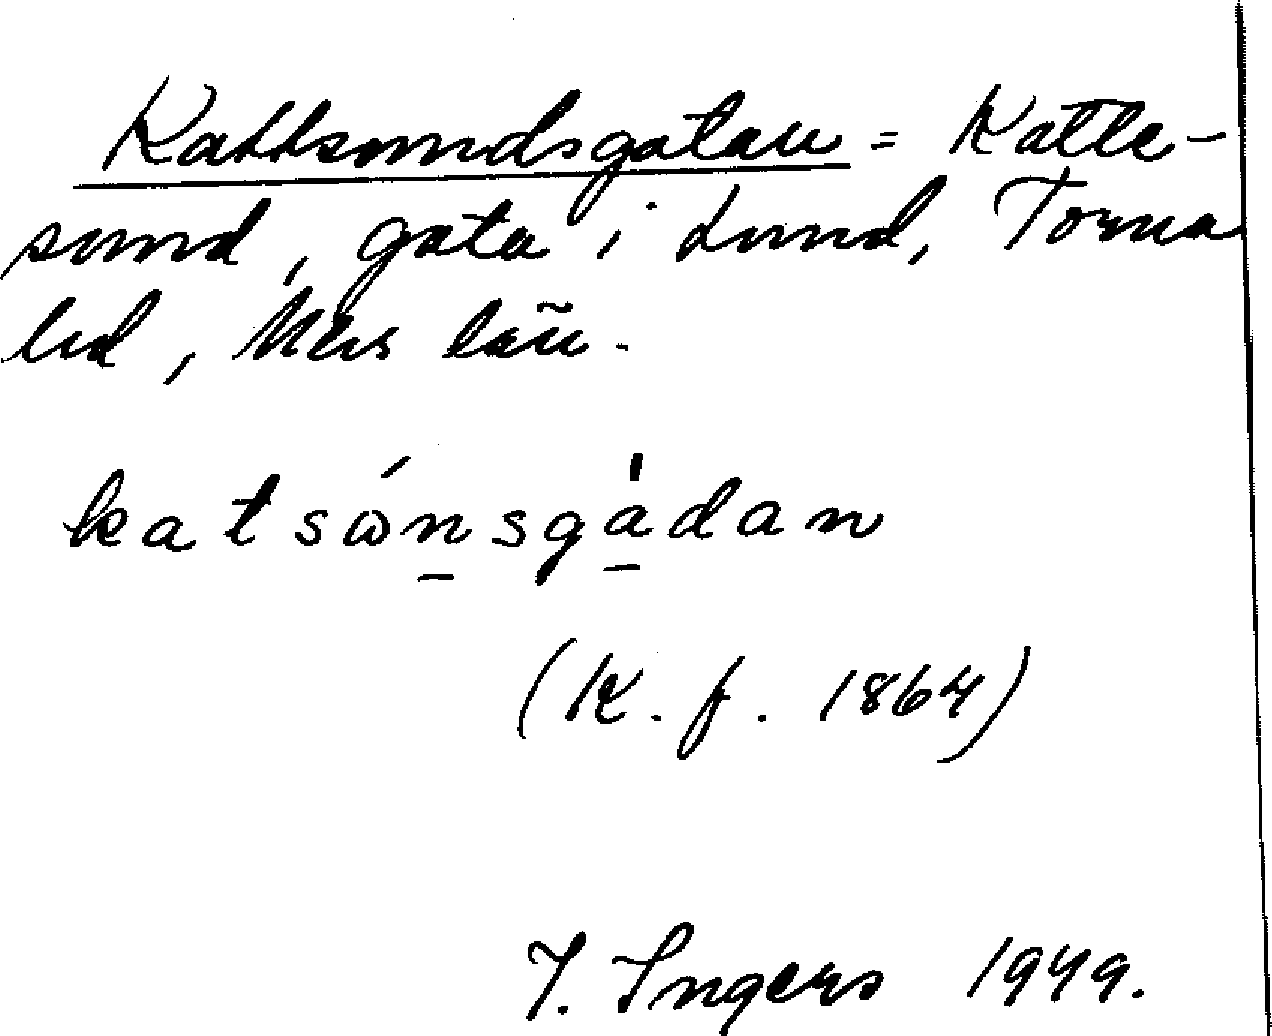 Kattsundsgatan = Katte-
sund, gata i Lund, Torna
hd, Mlhs län.
katsωńsgådan
(K. f. 1864)
I. Ingers 1949.